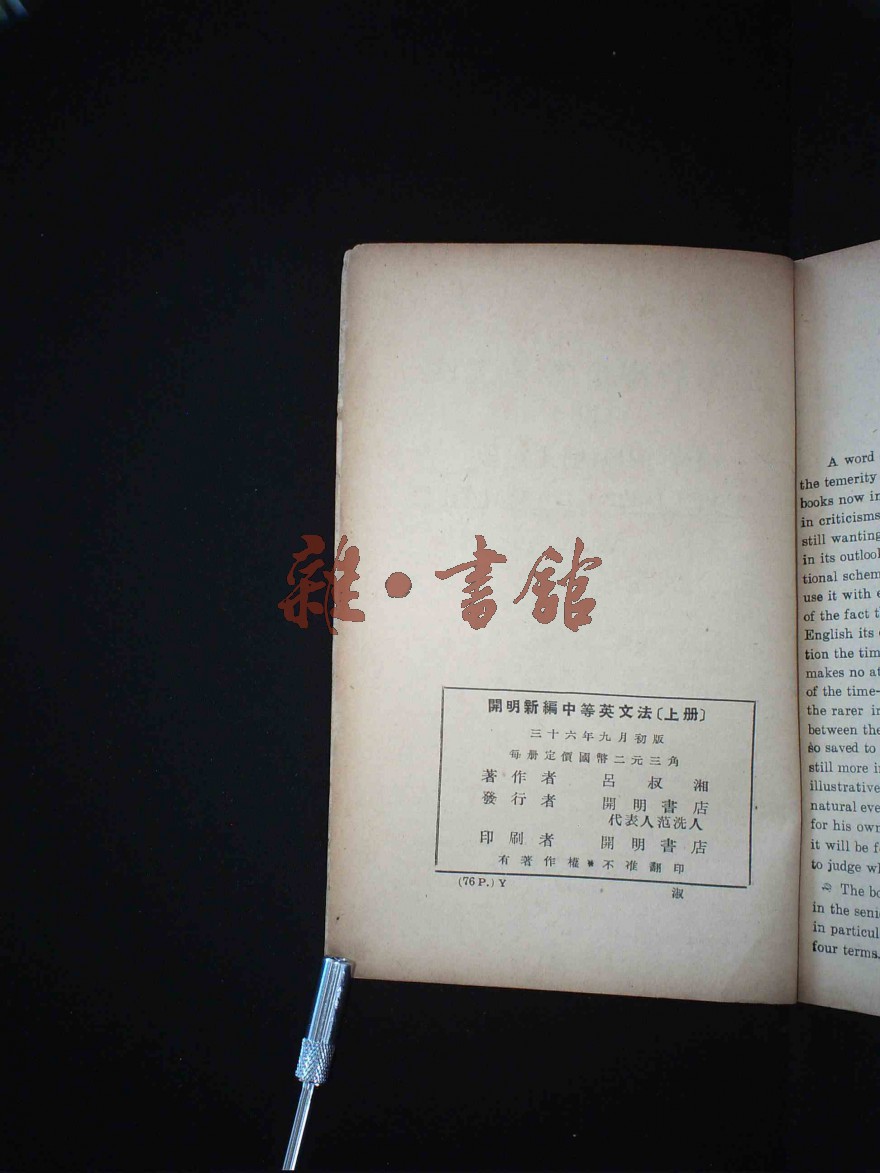 雜·書館
開明新編中等英文法〔上册〕
三十六年九月初版
每册定價國幣二元三角
著作者 呂叔湘
發行者 開明書店
代表人范洗人
印刷者 開明書店
有著作權 不准翻印
(76 P.) Y
淑
A word
the temerity
books now in
in criticisms
still wanting
in its outlook
tional schem
use it with e
of the fact t
English its
tion the tim
makes no at
of the time-
the rarer in
between the
so saved to
still more i
illustrative
natural eve
for his own
it will be f
to judge w
The bo
in the seni
in particul
four terms.